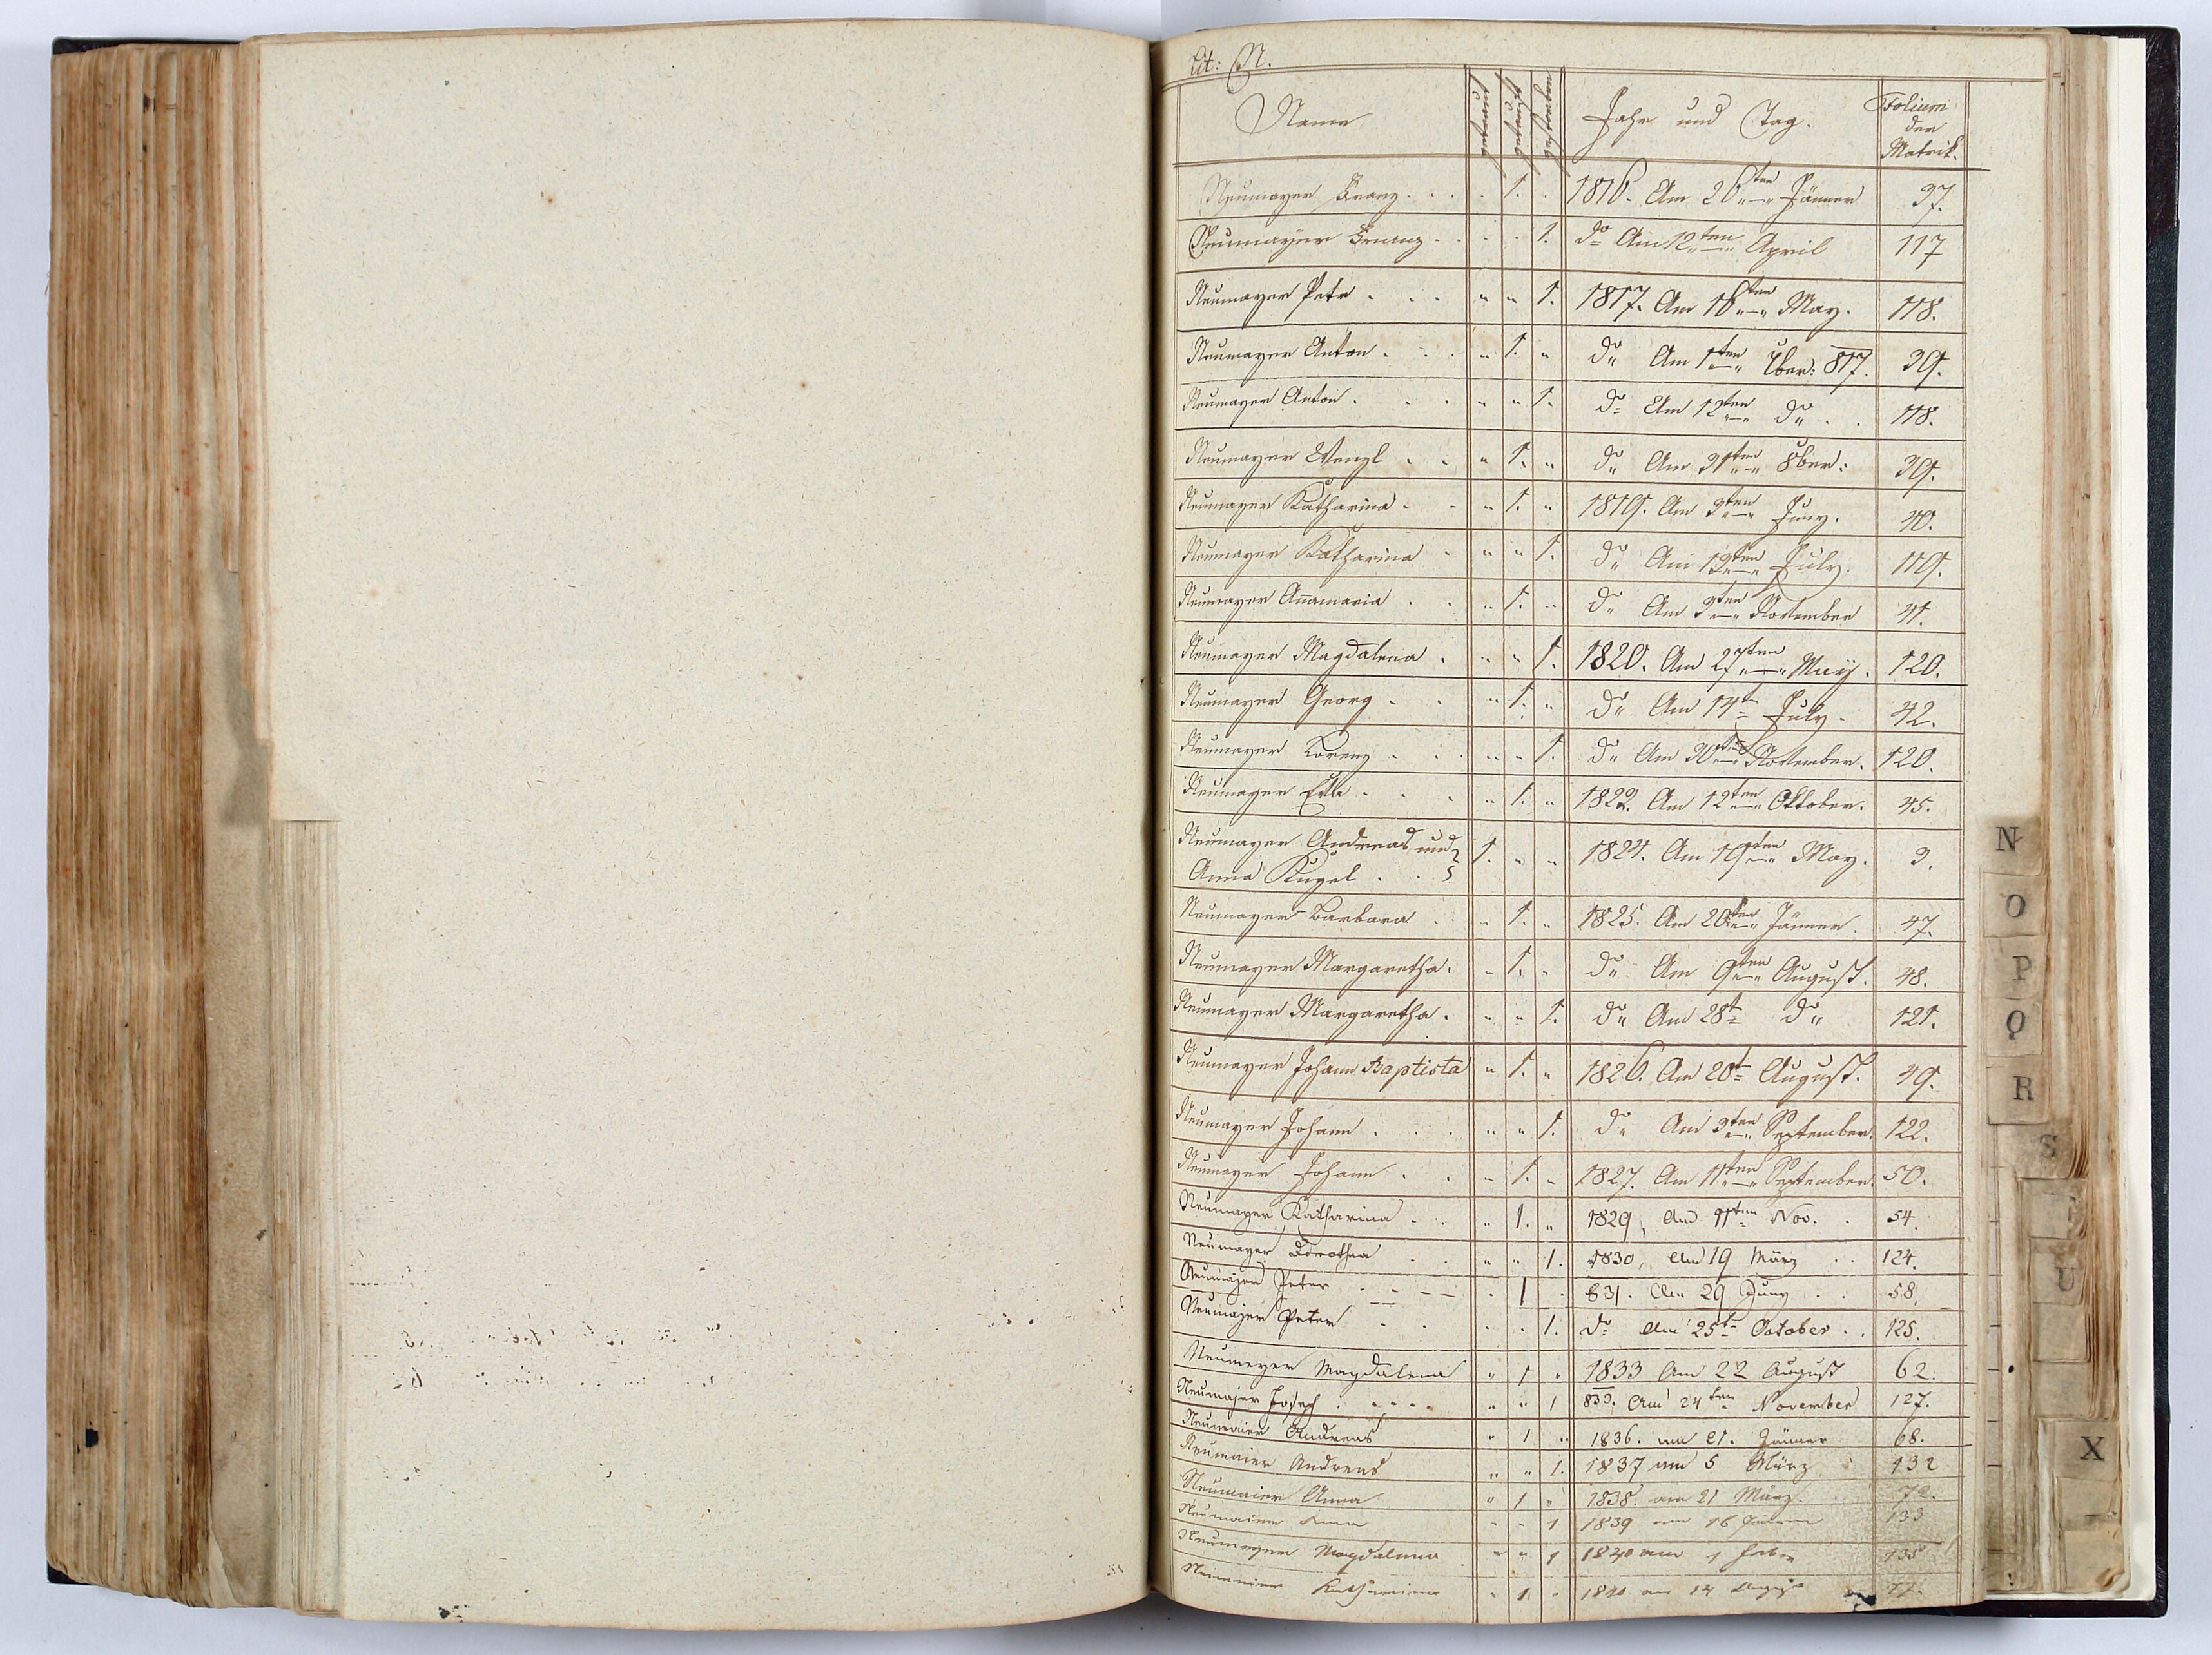 Lit: N.
Name Getraut Getauft Gestorben Jahr und Tag. Folium der Matrik.
Neumayer Franz . . . . 1. . 1816. Am 26ten Jänner 37.
Neumayer Franz . . . . 1. do Am 12ten April 117
Neumayer Peter . . . " " 1. 1817. Am 16ten May. 118.
Neumayer Anton . . . " 1. " do Am 1ten 7ber: 817. 39.
Neumayer Anton . . . " " 1. do Am 12ten do . . 118.
Neumayer Wenzl . . " 1. " do Am 31ten 8ber: 39.
Neumayer Katharina . . " 1. " 1819. Am 3ten Juny. 40.
Neumayer Katharina . " " 1. do Am 13ten July. 119.
Neumayer Annamaria . . " 1. " do Am 3ten November 41.
Neumayer Magdalena . " " 1. 1820. Am 27ten May. 120.
Neumayer Georg . . " 1. " do Am 14t July. 42.
Neumayer Lorenz . . . " " 1. do Am 30ten November. 120.
Neumayer Eva . . . . " 1. " 1822. Am 12ten Oktober. 45.
Neumayer Andreas und
Anna Kugel . . 1. " " 1824. Am 19ten May. 3.
Neumayer Barbara . " 1. " 1825. Am 20ten Jänner. 47.
Neumayer Margaretha. " 1. " do Am 9ten August. 48.
Neumayer Margaretha. " " 1. do Am 28t do 121.
Neumayer Johann Baptista " 1. " 1826. Am 20t August. 49.
Neumayer Johann . . . " " 1. do Am 3ten September. 122.
Neumayer Johann . . " 1. " 1827. Am 11ten September. 50.
Neumayer Katharina . . " 1. " 1829, Am 11ten Nov. . 54.
Neumayer Dorothea . . " " 1. 1830, Am 19 März . . 124.
Neumajer Peter . . . . 1 . 831. Am 29 Juny . . 58.
Neumajer Peter . . . . 1. do Am 25t October . . 125.
Neumeyer Magdalena " 1 " 1833 Am 22 August 62.
Neumajer Joseph . . . . " " 1 833. Am 24ten November 127.
Neumaier Andreas " 1 " 1836. am 21. Jänner 68.
Neumaier Andreas " " 1. 1837 am 5 März 132
Neumaier Anna " 1 " 1838. am 21 März. 72.
Neumaier Anna " " 1 1839 am 16 133
Neumayer Magdalena " " 1 1840 am 1 135
Katharina " 1 " 1840 am 14 77.
N
O
P
Q
R
S
U
X